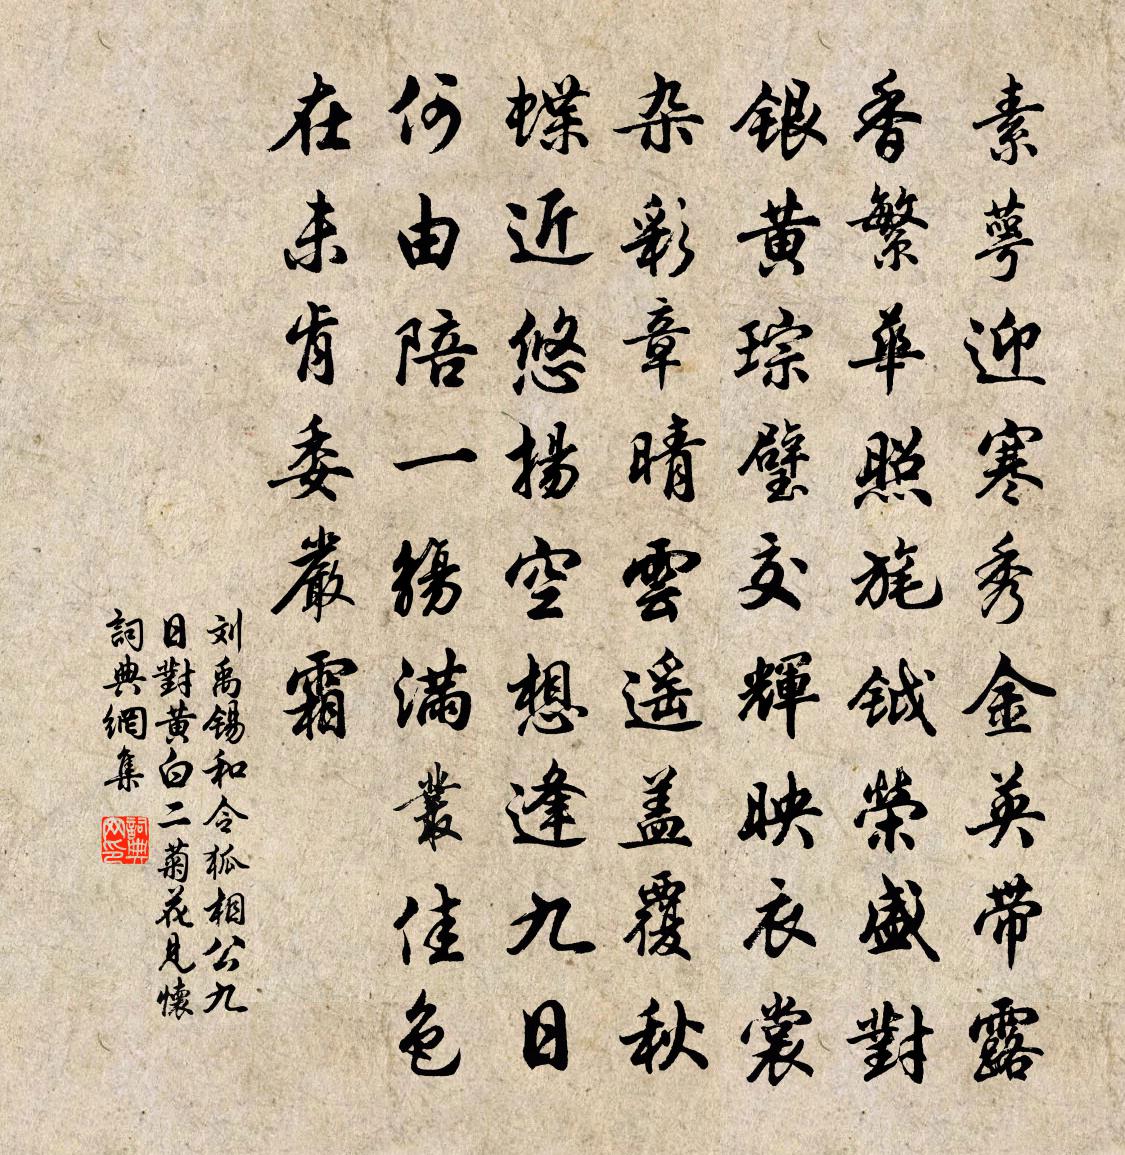 素萼迎寒秀金英带露
香繁華照旄钺榮盛對
銀黄琮璧交輝映衣裳
杂彩章晴雲遥盖覆秋
蝶近悠揚空想逢九日
何由陪一觴满叢佳色
在未肯委嚴霜
刘禹锡和令狐相公九
日對黄白二菊花見懷
詞典網集
詞典网印